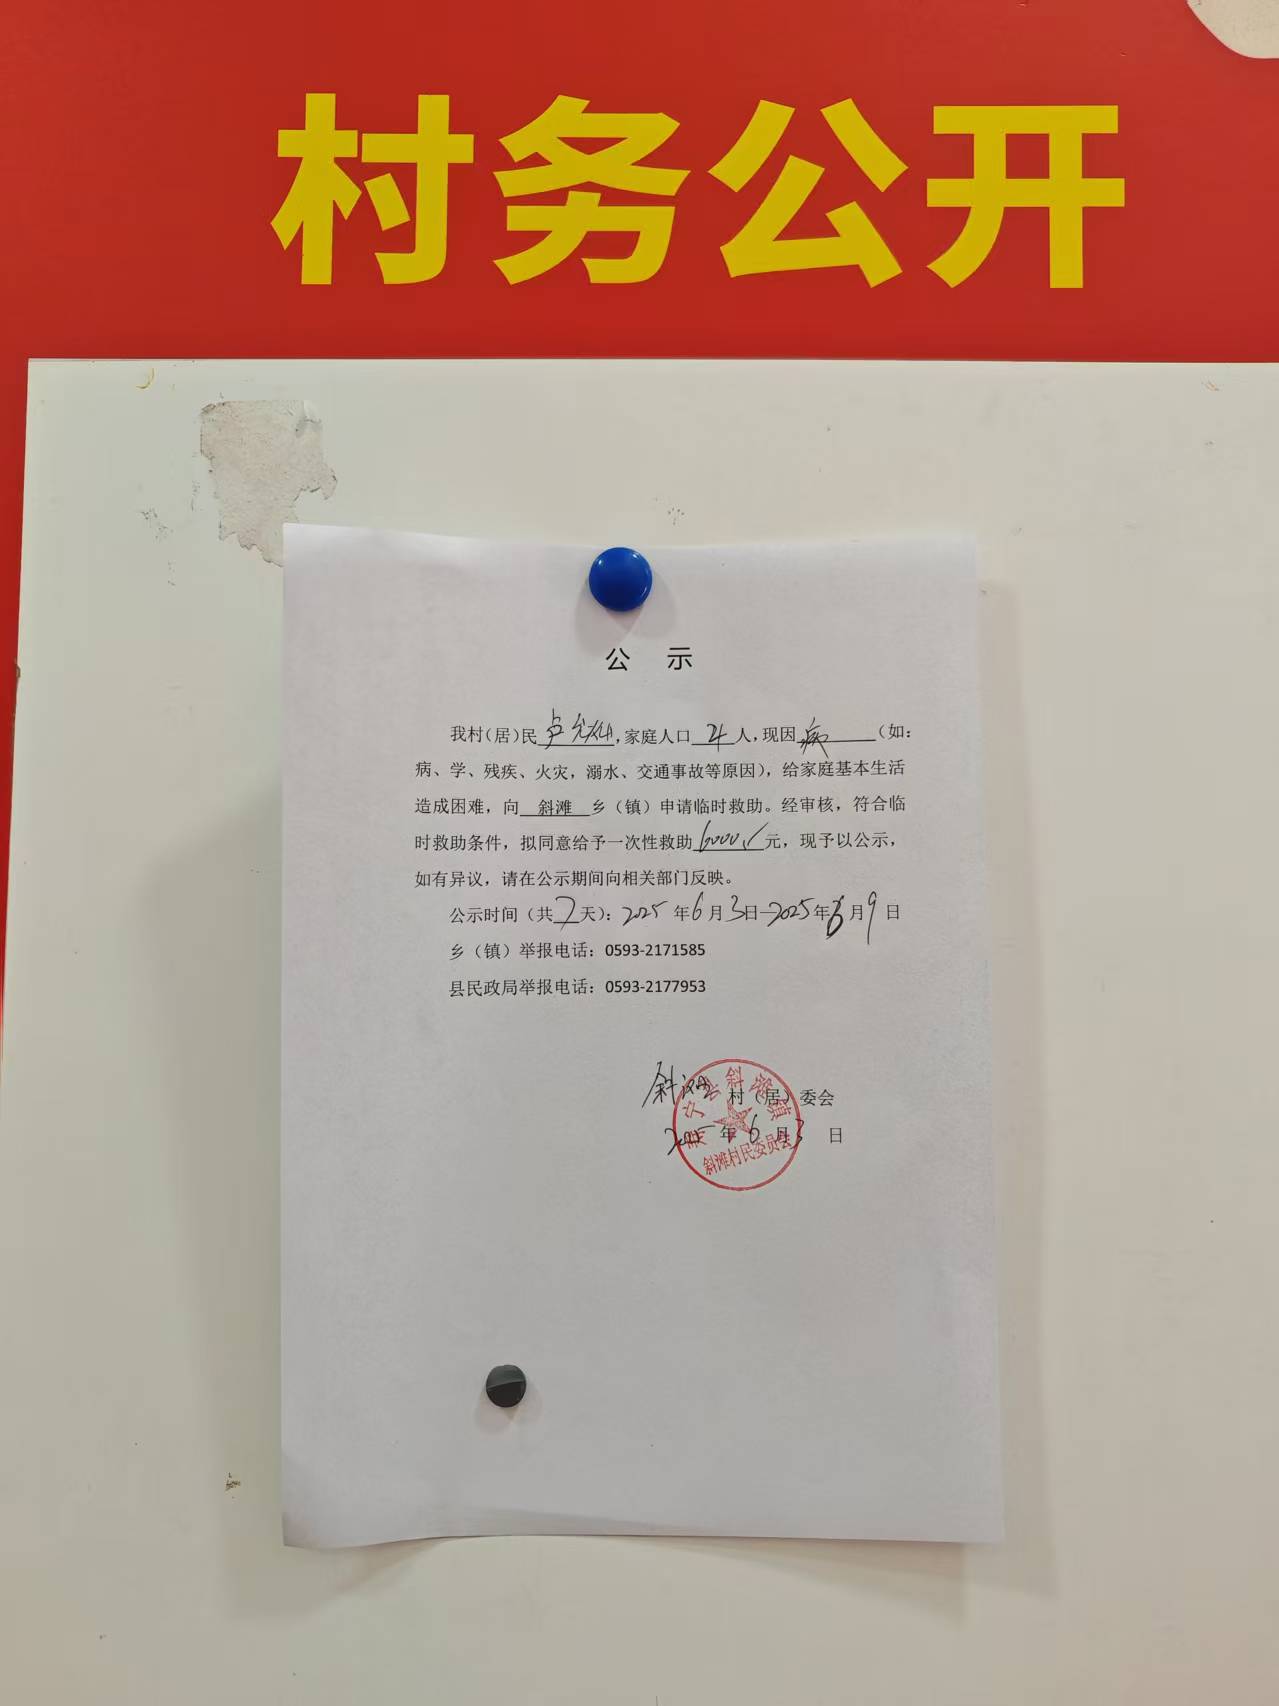 村务公开
公 示
我村(居)民卢,家庭人口4人,现因病(如:
病、学、残疾、火灾,溺水、交通事故等原因),给家庭基本生活
造成困难,向 斜滩 乡(镇)申请临时救助。经审核,符合临
时救助条件,拟同意给予一次性救助6000元,现予以公示,
如有异议,请在公示期间向相关部门反映。
公示时间(共7天):2025年6月3日—2025年6月9日
乡(镇)举报电话:0593-2171585
县民政局举报电话:0593-2177953
斜滩 村(居)委会
2025年6月3日
寿宁县斜滩镇
斜滩村民委员会